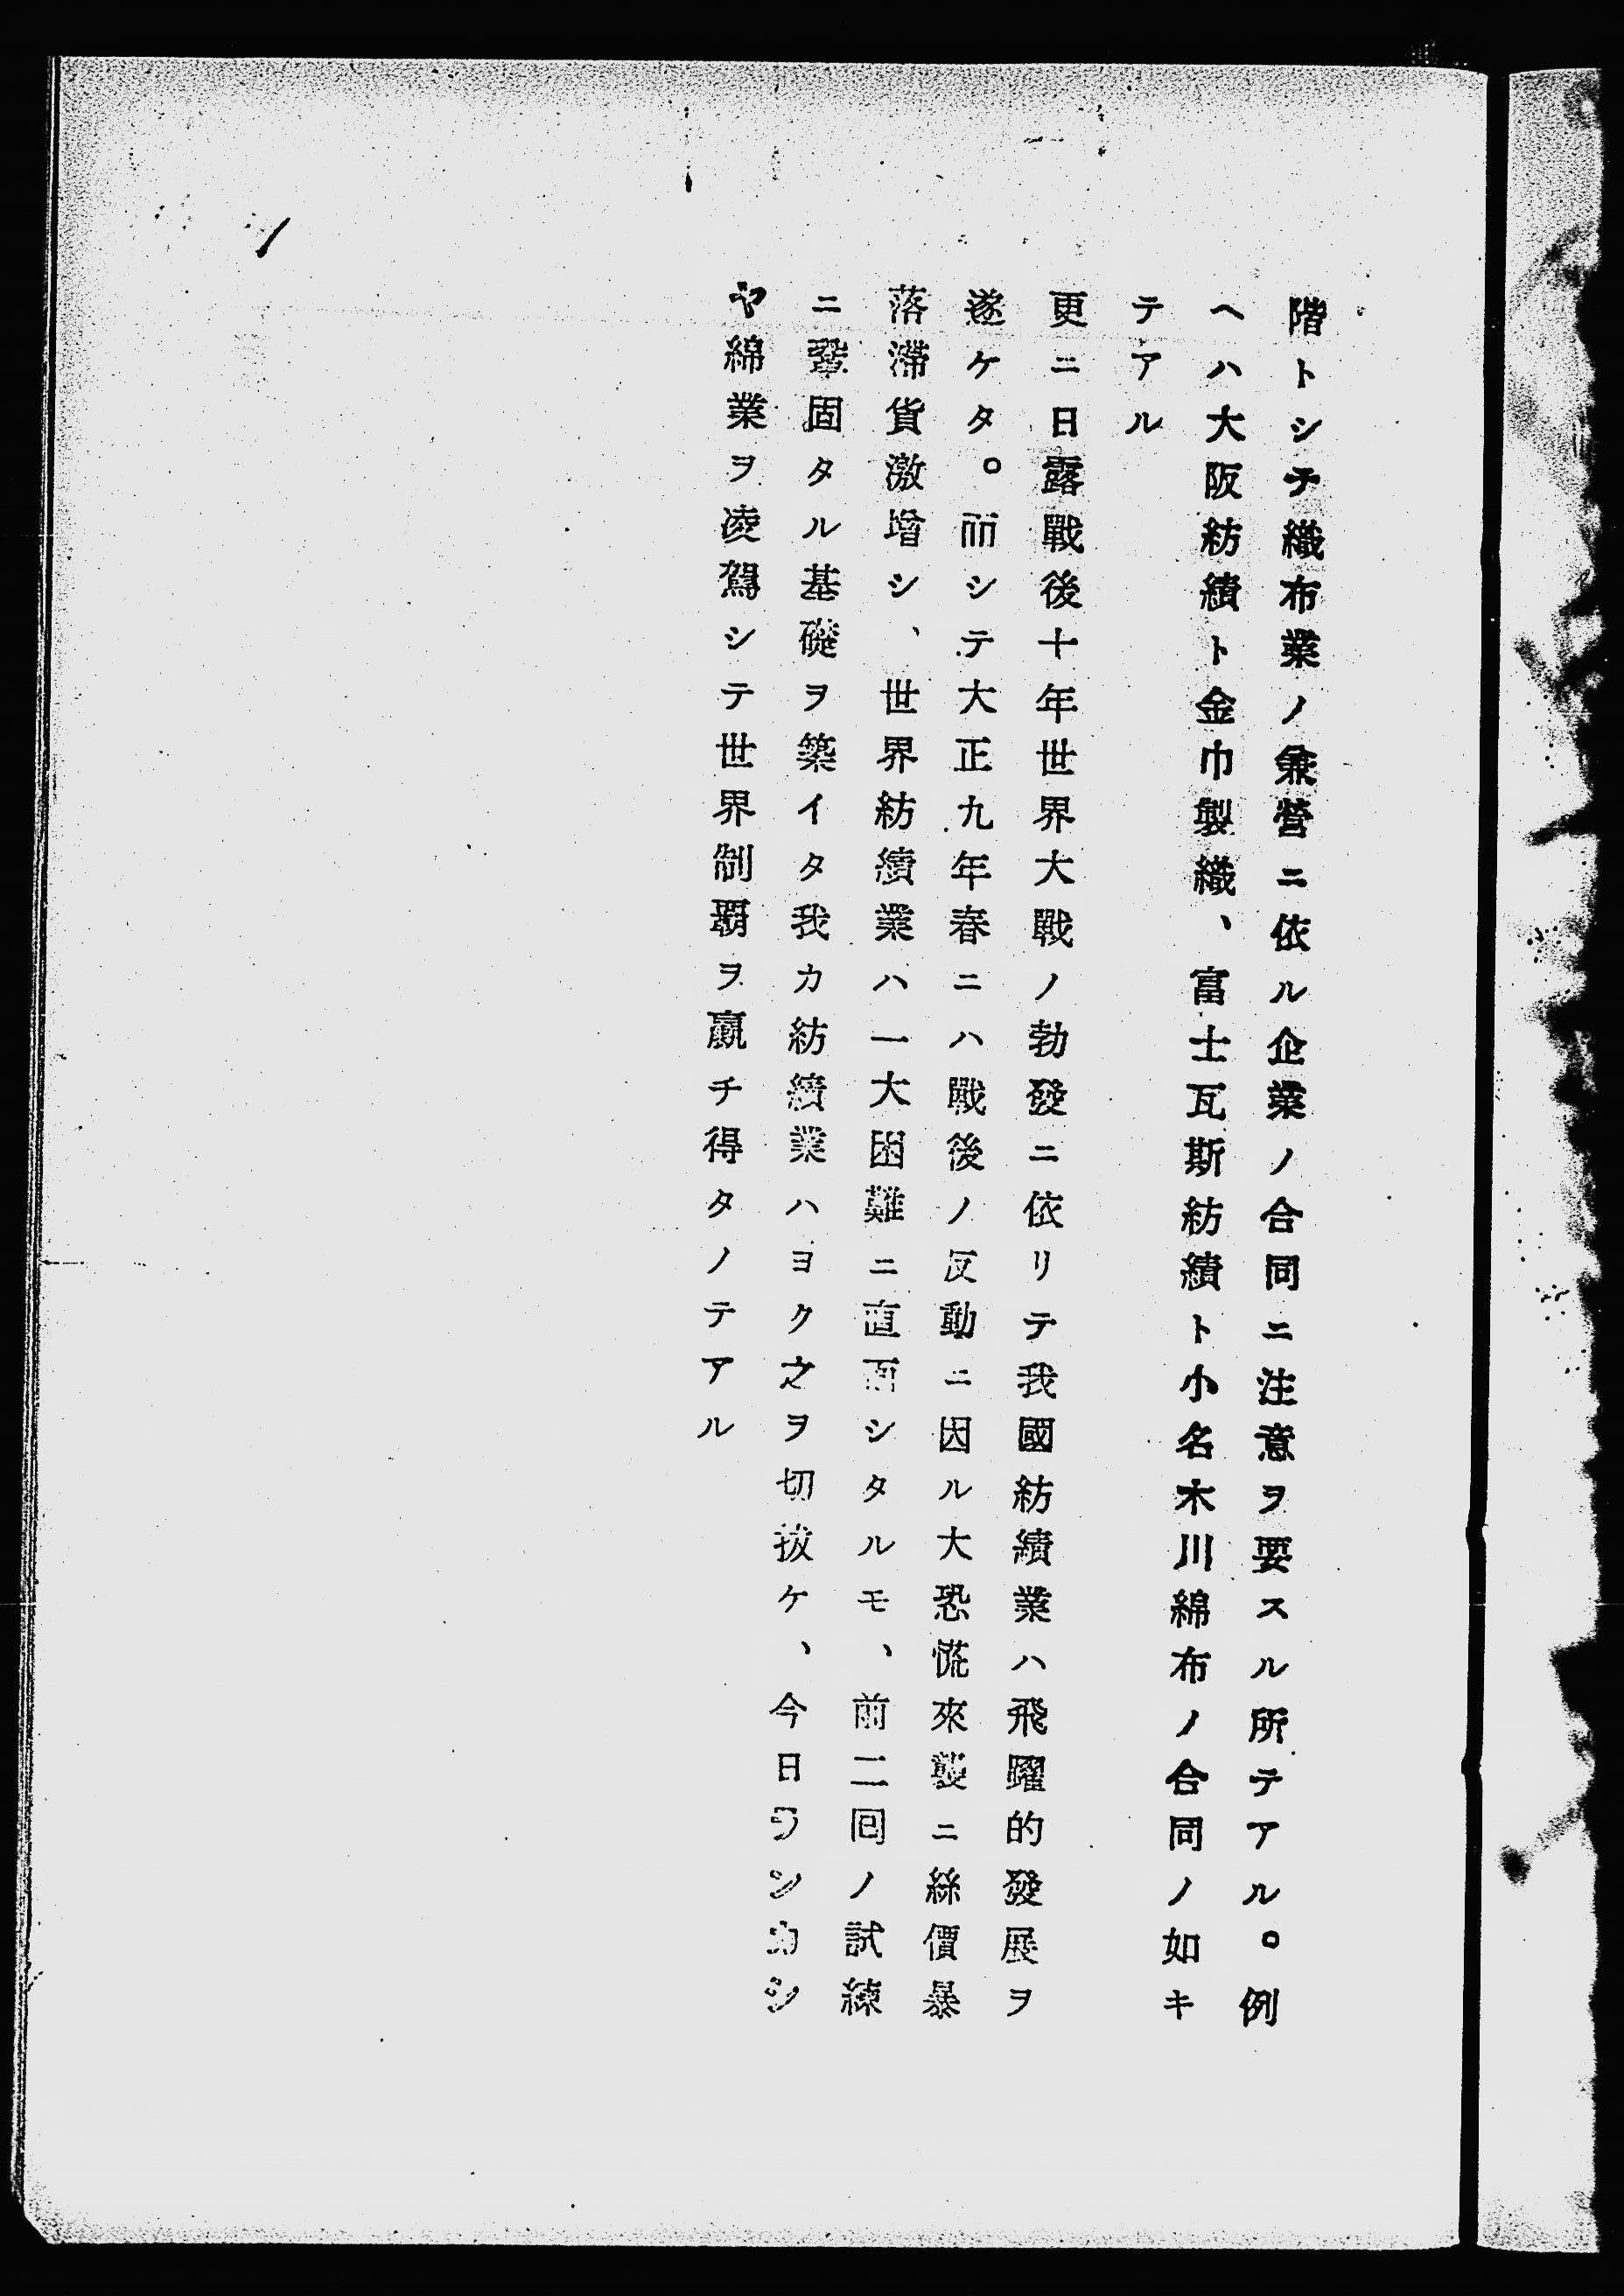 階トシテ織布業ノ兼營ニ依ル企業ノ合同ニ注意ヲ要スル所テアル。例
ヘハ大阪紡績ト金巾製織、富士瓦斯紡績ト小名木川綿布ノ合同ノ如キ
テアル
更ニ日露戰後十年世界大戰ノ勃發ニ依リテ我國紡績業ハ飛躍的發展ヲ
遂ケタ。而シテ大正九年春ニハ戰後ノ反動ニ因ル大恐慌來襲ニ絲價暴
落滯貨激增シ、世界紡績業ハ一大困難ニ直面シタルモ、前二囘ノ試練
ニ鞏固タル基礎ヲ築イタ我カ紡績業ハヨク之ヲ切拔ケ、今日ランカシ
ヤ綿業ヲ凌駕シテ世界制覇ヲ贏チ得タノテアル